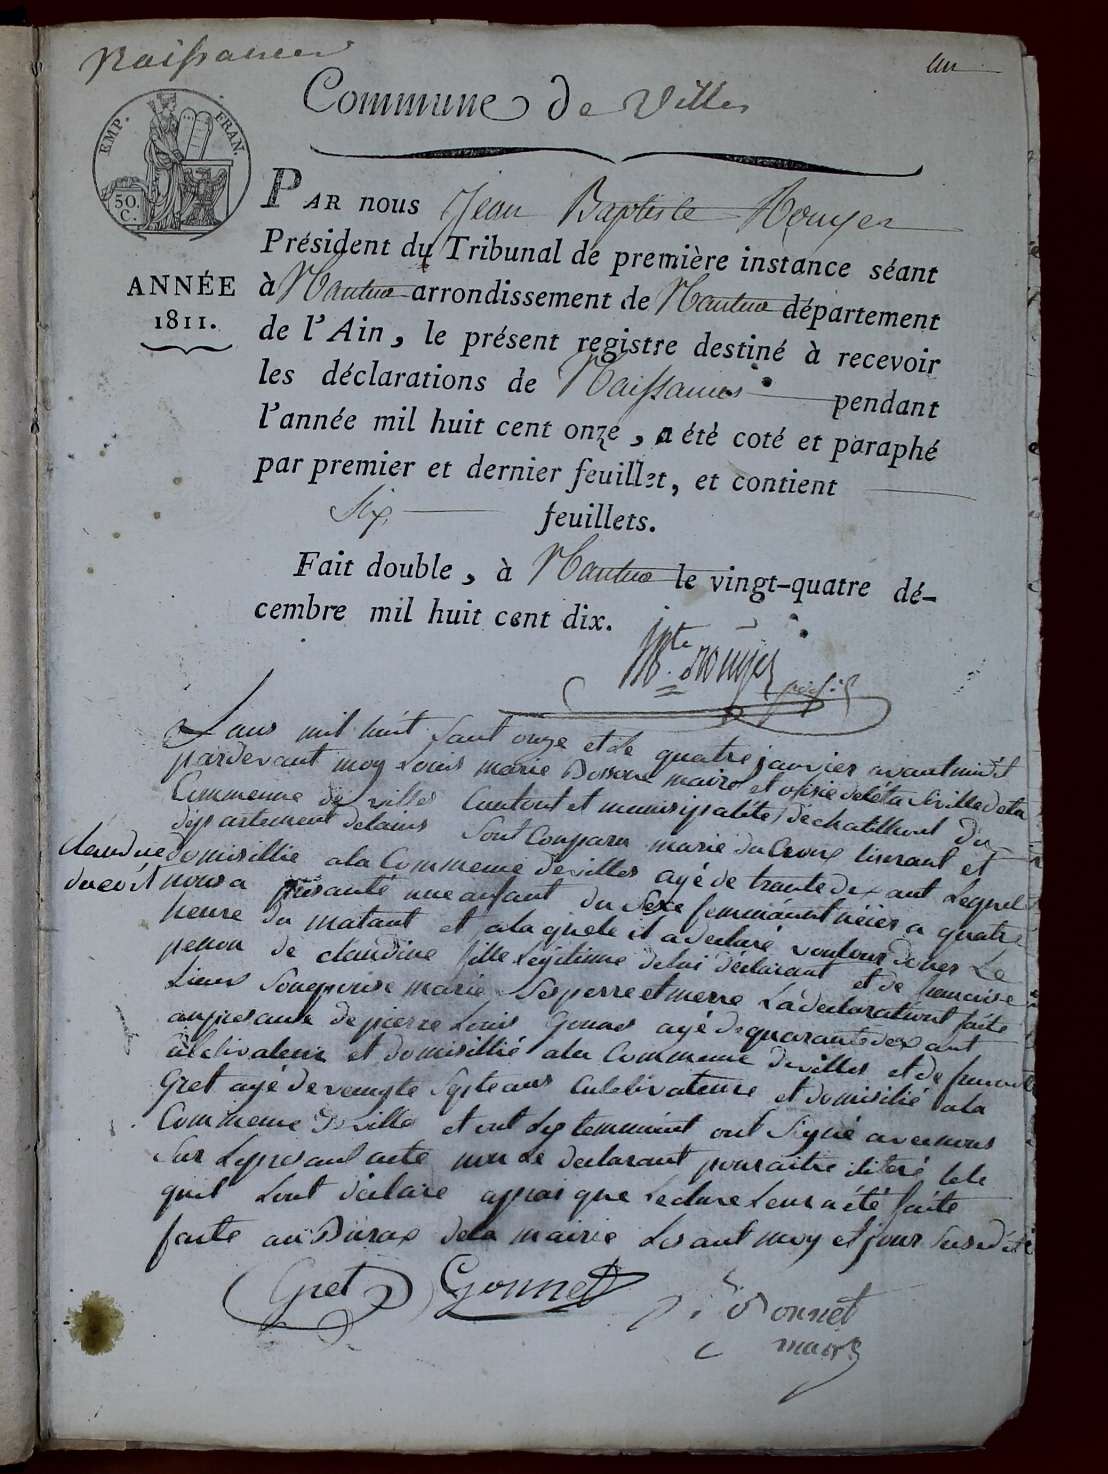 Naissances
un
Commune de Villes
EMP. FRAN.
50.
C.
ANNÉE
1811.
PAR nous Jean Baptiste Rouyer
Président du Tribunal de première instance séant
à Nantua arrondissement de Nantua département
de l'Ain, le présent registre destiné à recevoir
les déclarations de Naissances pendant
l'année mil huit cent onze, a été coté et paraphé
par premier et dernier feuillet, et contient
Six feuillets.
Fait double, à Nantua le vingt-quatre dé-
cembre mil huit cent dix.
Bte Rouyer
Lans mil huit sant onze et le quatre janvier avant midit
pardevant moy Louis marie maire et de la
Commenne de villes Cantont et munisipalite de chatillont du
departement delains sont Conparu marie du Croux tiserant et
claudine
ducroit
domisillie a la Commenne de villes agé de trante dex ant Lequel
nous a présanté une anfant du Sexe femminint néier a quatre
heure du matant et a la quele il a declaré vouloir doner le
penon de claudine fille Legitime de lui declarant et de francoise
marie Ses perre et merre La declarationt faite
anpresance de pierre Louis Gonnet agé de quarante dex ant
culetivateur et domisillié a la Commenne de villes et de
Gret agé de veingte Septe ans Culetivateure et domisilié a la
Commenne de ville et ont Les temmoint ont Signé avec nous
Sur Le presant acte non Le declarant pour aitre iliteré tele
quil Lont declaire apprai que Lecture Leur a été faite
faite au Burax de la mairie Les ant moy et jour Susdit
Gret Gonnet Bonnet
maire